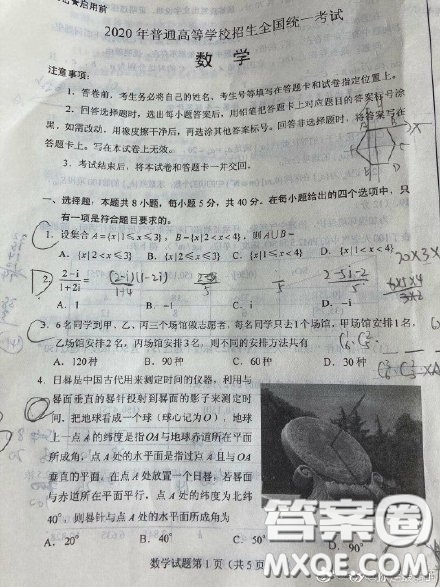 ★启用前
2020年普通高等学校招生全国统一考试
数 学
注意事项：
1．答卷前，考生务必将自己的姓名、考生号等填写在答题卡和试卷指定位置上。
2．回答选择题时，选出每小题答案后，用铅笔把答题卡上对应题目的答案标号涂
黑，如需改动，用橡皮擦干净后，再选涂其他答案标号。回答非选择题时，将答案写在
答题卡上。写在本试卷上无效。
3．考试结束后，将本试卷和答题卡一并交回。
一、选择题：本题共8小题，每小题5分，共40分。在每小题给出的四个选项中，只
有一项是符合题目要求的。
1．设集合A={x|1≤x≤3}，B={x|2<x<4}，则A∪B=
A．{x|2<x≤3} B．{x|2≤x≤3} C．{x|1≤x<4} D．{x|1<x<4}
2．(2-i)/(1+2i)= (2-i)(1-2i)/(1+4) 2-5i-2/5
A．1 B．-1 C．i D．-i
6×5×4/3×2
3．6名同学到甲、乙、丙三个场馆做志愿者，每名同学只去1个场馆，甲场馆安排1名，
乙场馆安排2名，丙场馆安排3名，则不同的安排方法共有
A．120种 B．90种 C．60种 D．30种
4．日晷是中国古代用来测定时间的仪器，利用与
晷面垂直的晷针投射到晷面的影子来测定时
间．把地球看成一个球（球心记为O），地球
上一点A的纬度是指OA与地球赤道所在平面
所成角，点A处的水平面是指过点A且与OA
垂直的平面．在点A处放置一个日晷，若晷面
与赤道所在平面平行，点A处的纬度为北纬
40°，则晷针与点A处的水平面所成角为
A．20° B．40° C．50° D．90°
数学试题第1页（共5页
答案圈
MXQE.COM